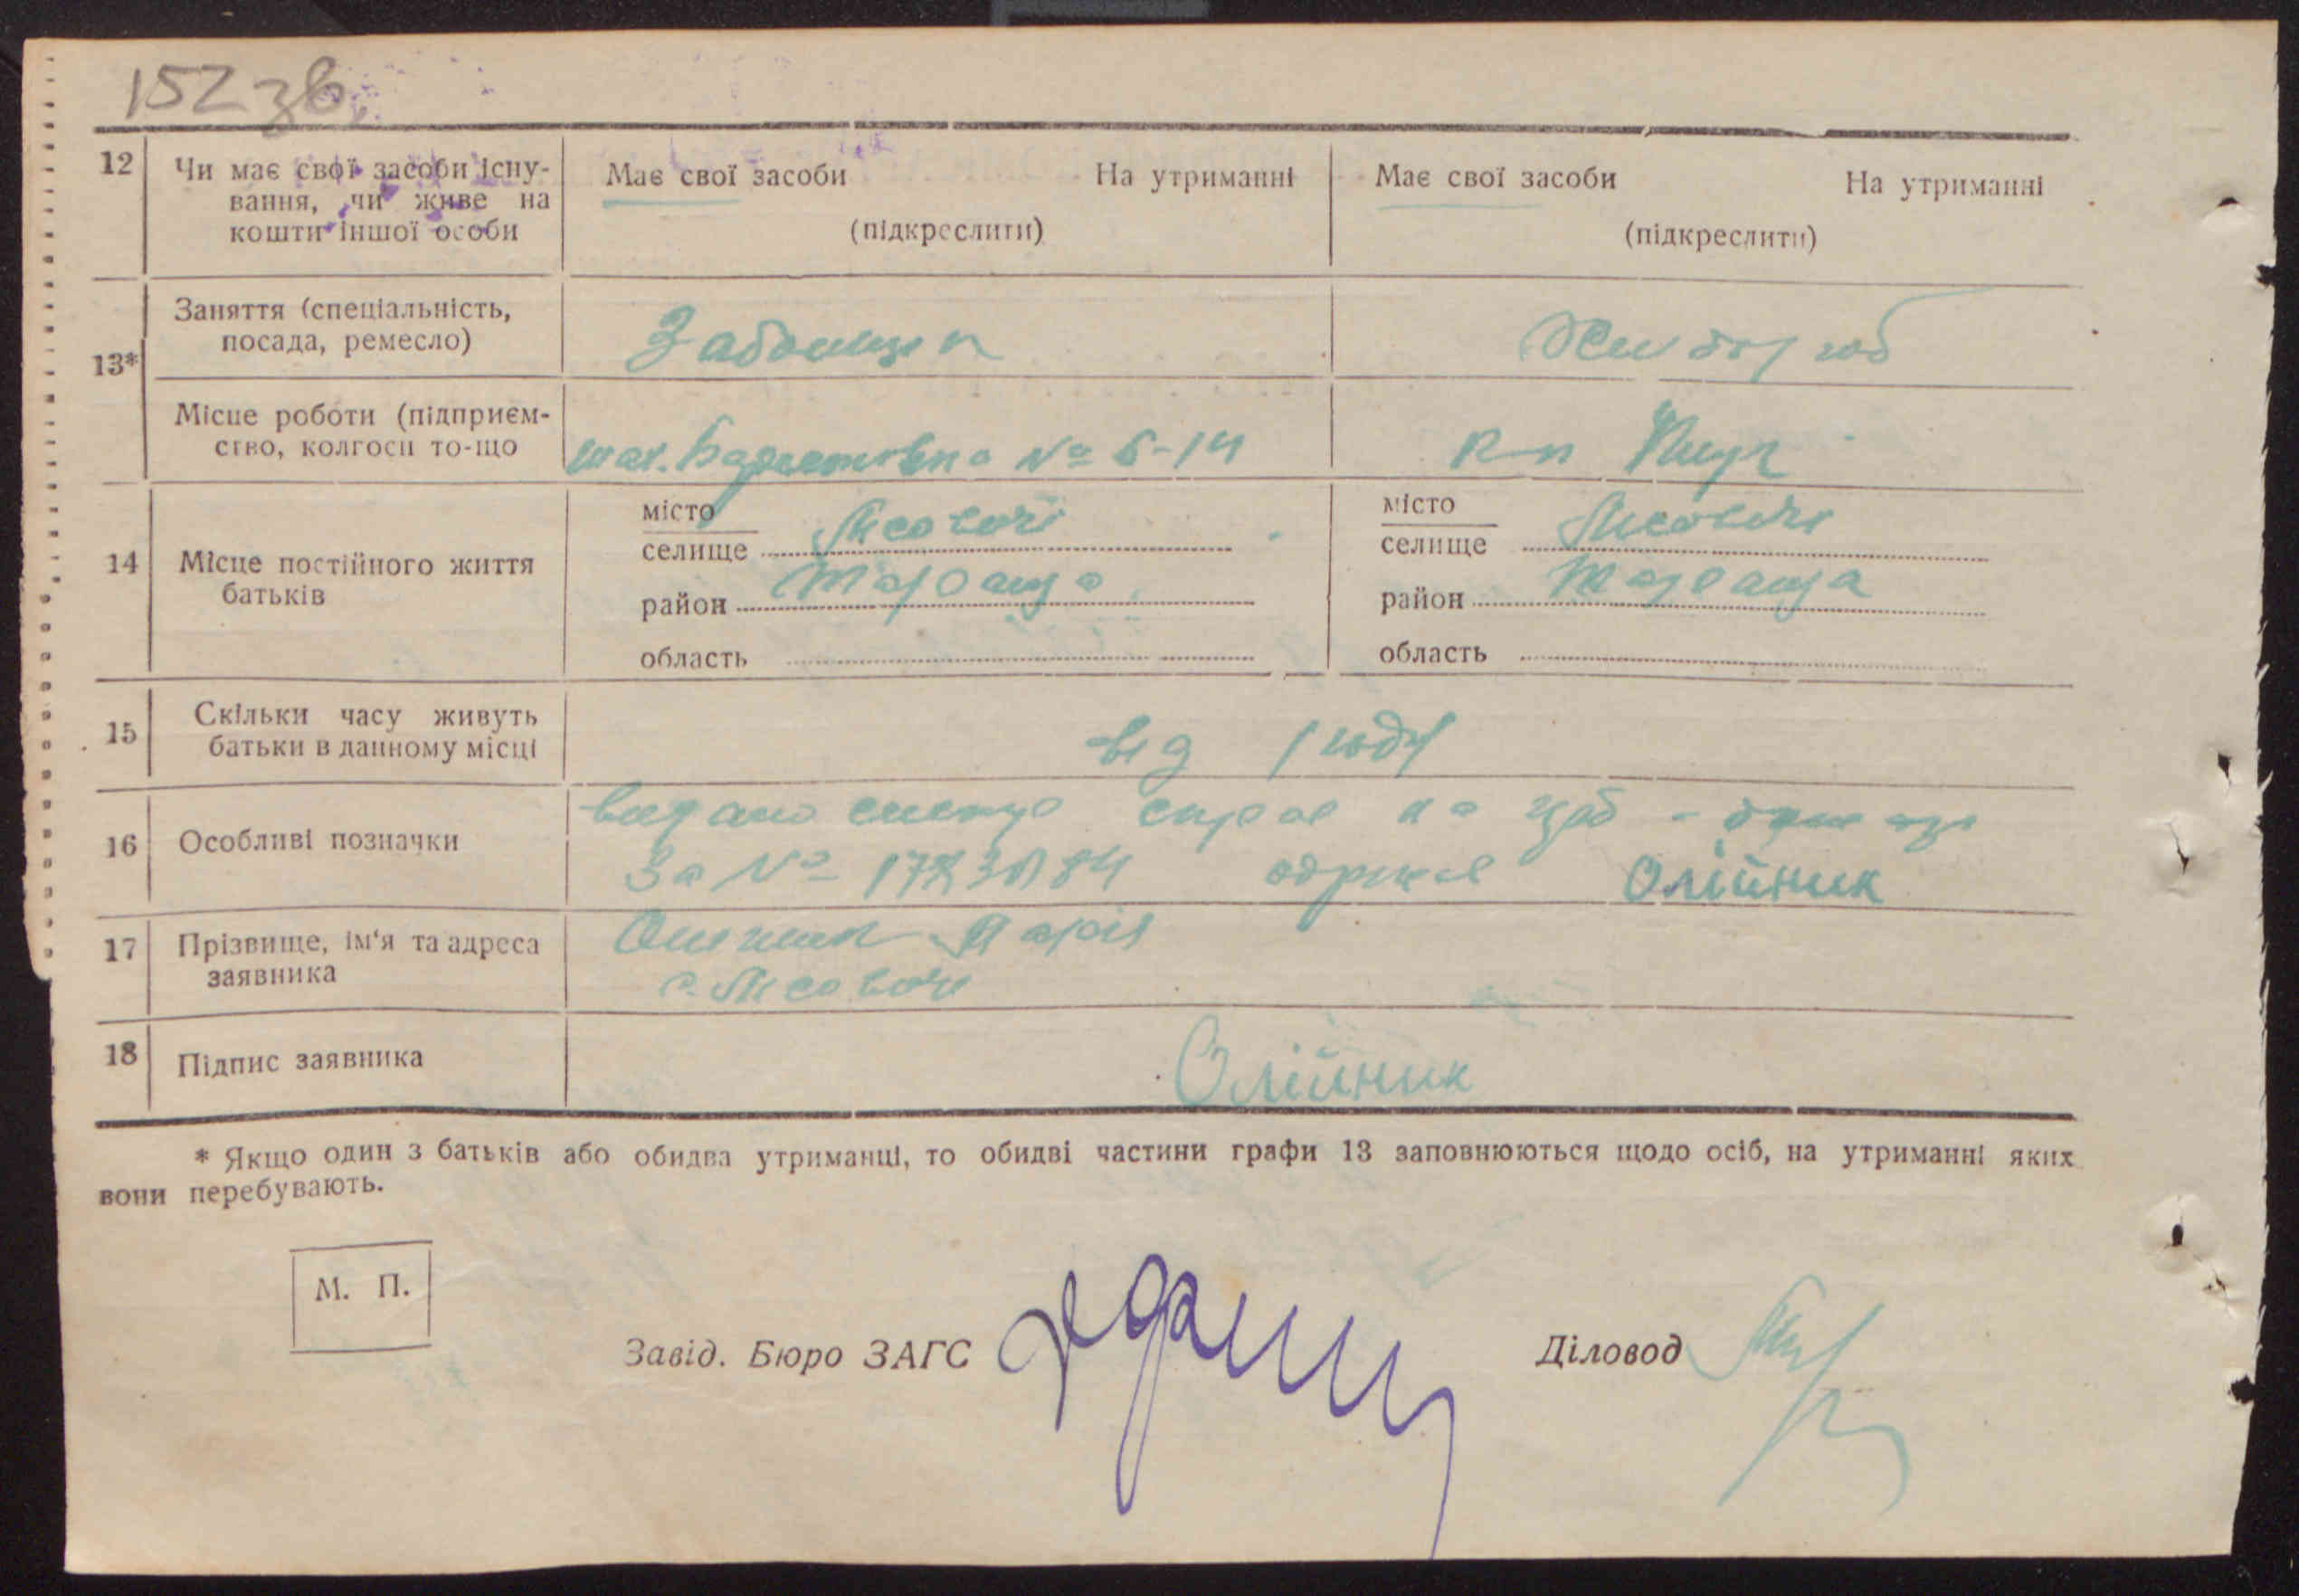 152 зв.
12 Чи має свої засоби існу-
вання, чи живе на
кошти іншої особи
Має свої засоби На утриманні
(підкреслити)
Має свої засоби На утриманні
(підкреслити)
13*
Заняття (спеціальність,
посада, ремесло)
Забойщик
Місце роботи (підприєм-
ство, колгосп то-що
шах. № 6-14
14 Місце постійного життя
батьків
місто
селище Лісовичі
район Тараща
область
місто
селище Лісовичі
район Тараща
область
15 Скільки часу живуть
батьки в данному місці
від 1 году
16 Особливі позначки
видано
За № одржав Олійник
17 Прізвище, ім'я та адреса
заявника
Олійник Марія
с. Лісовичі
18 Підпис заявника
Олійник
* Якщо один з батьків або обидва утриманці, то обидві частини графи 13 заповнюються щодо осіб, на утриманні яких
вони перебувають.
М. П.
Завід. Бюро ЗАГС
Діловод